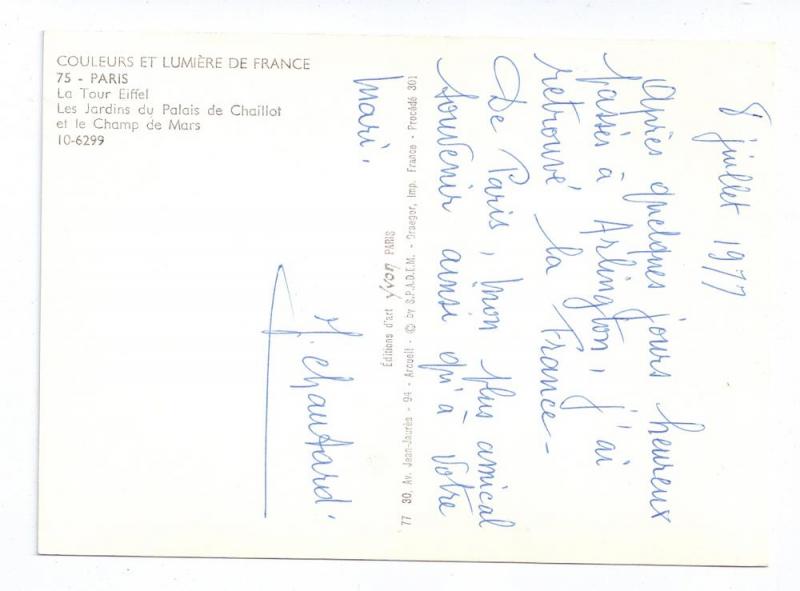 COULEURS ET LUMIÈRE DE FRANCE
75 - PARIS
La Tour Eiffel
Les Jardins du Palais de Chaillot
et le Champ de Mars
10-6299
8 juillet 1977
Après quelques jours heureux
passés à Arlington, j'ai
retrouvé la France -
De Paris, mon plus amical
souvenir ainsi qu'à votre
mari.
J. Chautard
Éditions d'art yvon PARIS
77 30, Av. Jean-Jaurès - 94 - Arcueil - © by S.P.A.D.E.M. - Draeger, Imp. France - Procédé 301